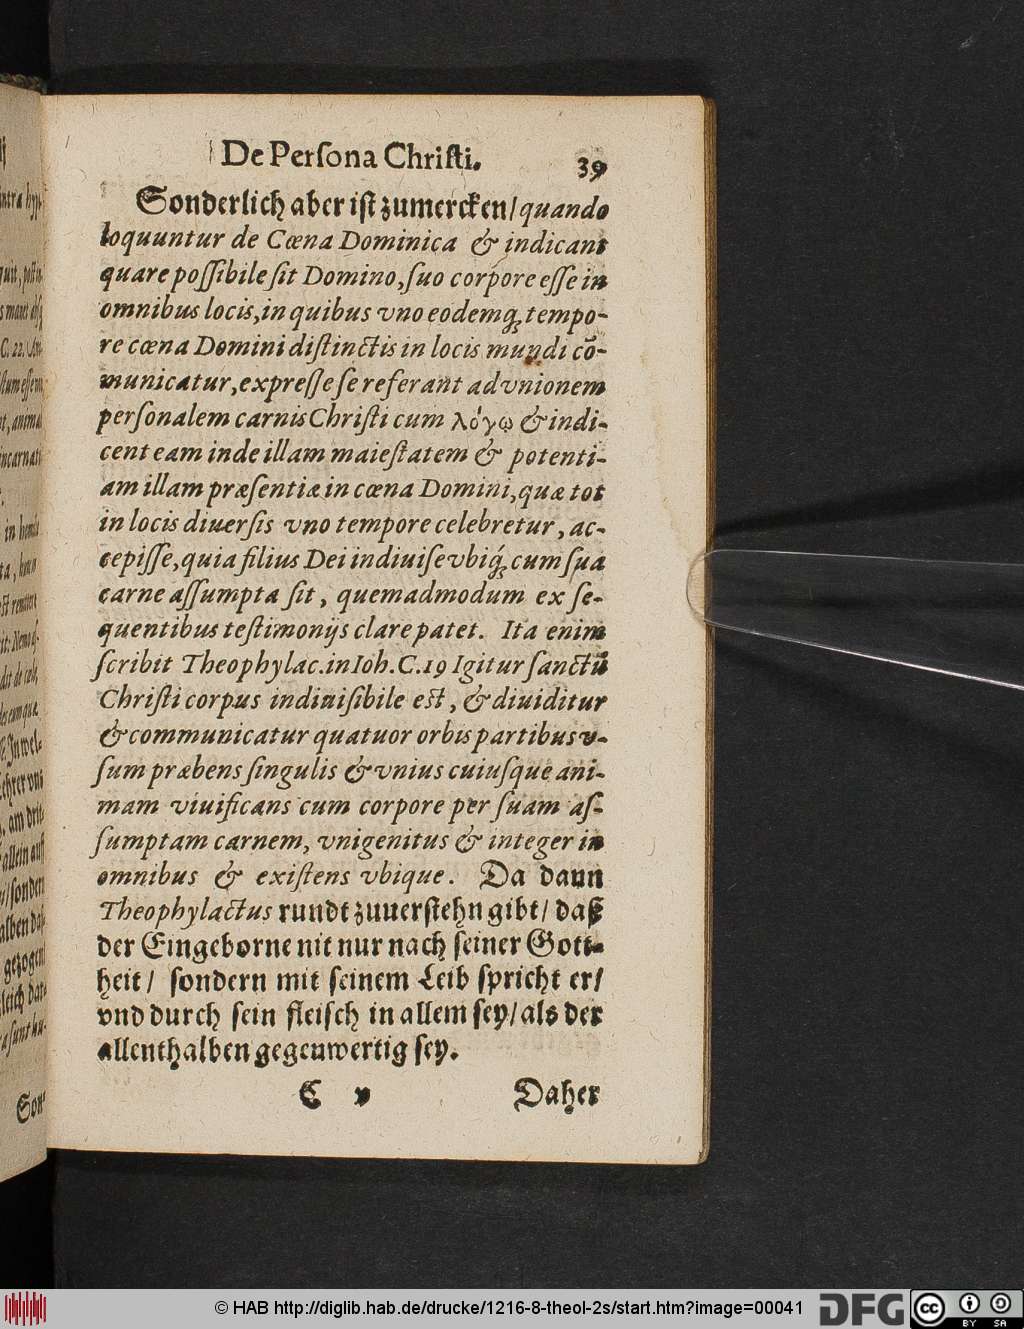 De Perſona Chriſti. 39
Sonderlich aber iſt zumercken/ quando
loquuntur de Cœna Dominica & indicant
quare poſſibile ſit Domino, ſuo corpore eſſe in
omnibus locis, in quibus vno eodemq́ tempo-
re cœna Domini diſtinctis in locis mundi cō-
municatur, expreſſe ſe referant ad vnionem
perſonalem carnis Chriſti cum λόγῳ & indi-
cent eam inde illam maieſtatem & potenti-
am illam præſentiæ in cœna Domini, quæ tot
in locis diuerſis vno tempore celebretur, ac-
cepiſſe, quia filius Dei indiuiſe vbiq́ cum ſua
carne aſſumpta ſit, quemadmodum ex ſe-
quentibus teſtimonijs clare patet. Ita enim
ſcribit Theophylac. in Ioh. C. 19 Igitur ſanctū
Chriſti corpus indiuiſibile eſt, & diuiditur
& communicatur quatuor orbis partibus v-
ſum præbens ſingulis & vnius cuiuſque ani-
mam viuificans cum corpore per ſuam aſ-
ſumptam carnem, vnigenitus & integer in
omnibus & exiſtens vbique. Da dann
Theophylactus rundt zuuerſtehn gibt/ daß
der Eingeborne nit nur nach ſeiner Gott-
heit/ ſondern mit ſeinem Leib ſpricht er/
vnd durch ſein fleiſch in allem ſey/ als der
allenthalben gegenwertig ſey.
C v Daher
© HAB http://diglib.hab.de/drucke/1216-8-theol-2s/start.htm?image=00041 DFG cc BY SA